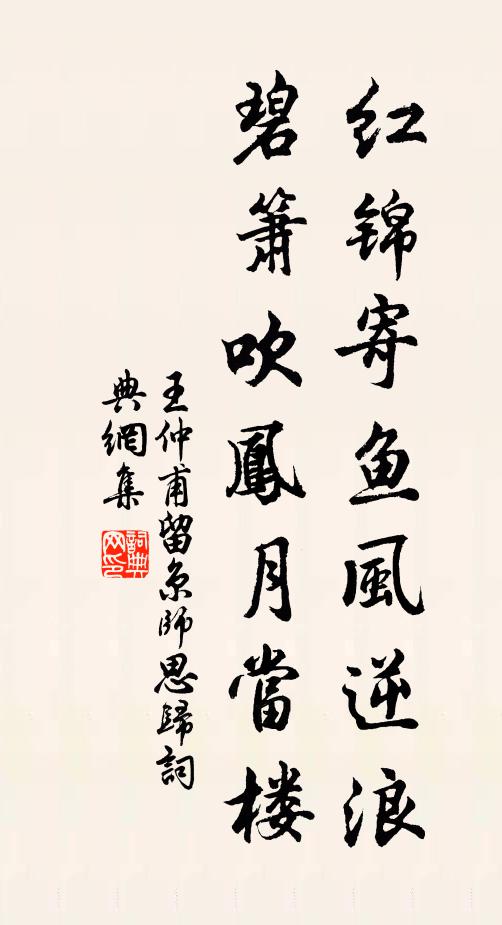 红锦寄鱼風逆浪
碧簫吹鳳月當楼
王仲甫留京師思歸詞
典網集
詞典网印